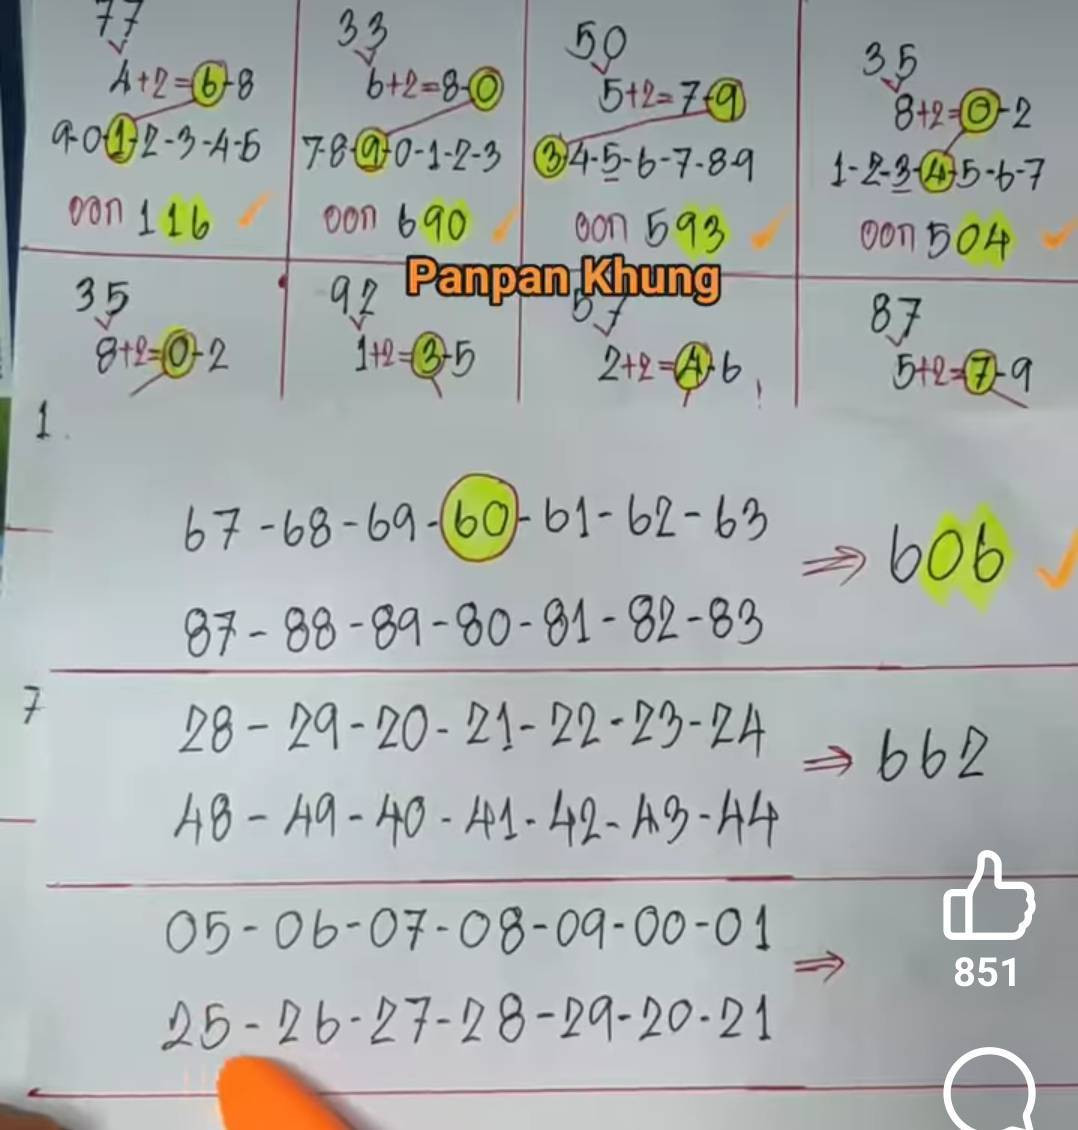 77 33 50 35
4+2=6-8 6+2=8-0 5+2=7-9 8+2=0-2
9-0-1-2-3-4-5 7-8-9-0-1-2-3 3-4-5-6-7-8-9 1-2-3-4-5-6-7
ออก 116 ออก 690 ออก 593 ออก 504
Panpan Khung
35 92 57 87
8+2=0-2 1+2=3-5 2+2=4-6 5+2=7-9
1.
67-68-69-60-61-62-63
⇒ 606
87-88-89-80-81-82-83
7
28-29-20-21-22-23-24
⇒ 662
48-49-40-41-42-43-44
05-06-07-08-09-00-01
⇒
25-26-27-28-29-20-21
851